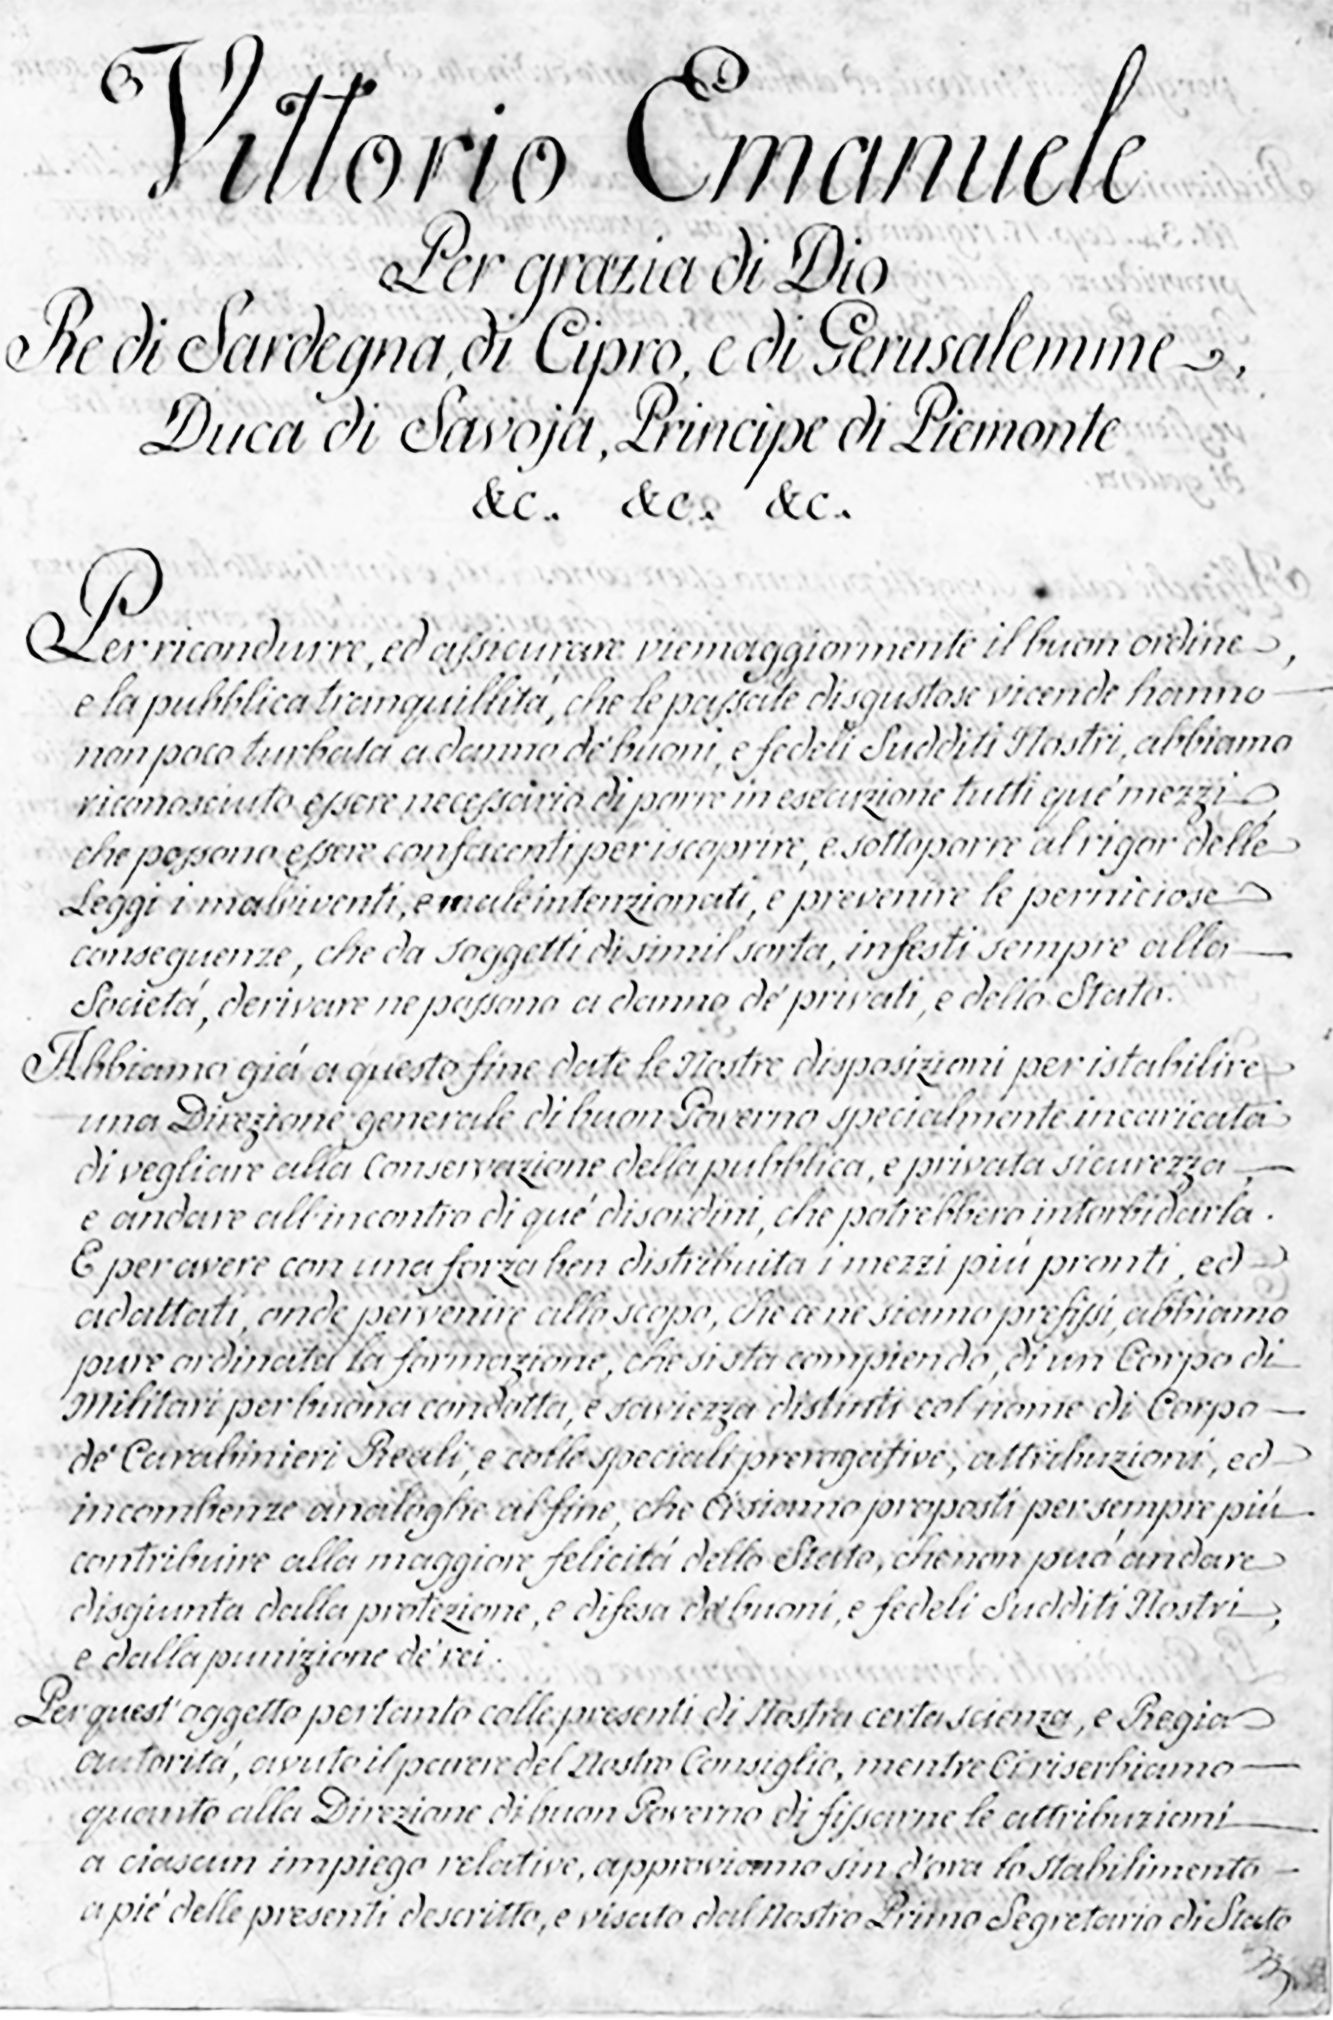 Vittorio Emanuele
Per grazia di Dio
Re di Sardegna, di Cipro, e di Gerusalemme,
Duca di Savoja, Principe di Piemonte
&c. &c. &c.
Per ricondurre, ed assicurare viemaggiormente il buon ordine,
e la pubblica tranquillità, che le passate disgustose vicende hanno
non poco turbata a danno de' buoni, e fedeli Sudditi Nostri, abbiamo
riconosciuto essere necessario di porre in esecuzione tutti que' mezzi,
che possono essere confacenti per iscoprire, e sottoporre al rigor delle
Leggi i malviventi, e male intenzionati, e prevenire le perniciose
conseguenze, che da soggetti di simil sorta, infesti sempre alla
Società, derivare ne possono a danno de' privati, e dello Stato.
Abbiamo già a questo fine date le Nostre disposizioni per istabilire
una Direzione generale di buon Governo specialmente incaricata
di vegliare alla conservazione della pubblica, e privata sicurezza,
e andare all'incontro di que' disordini, che potrebbero intorbidarla.
E per avere con una forza ben distribuita i mezzi più pronti, ed
adattati, onde pervenire allo scopo, che ce ne siamo prefissi, abbiamo
pure ordinata la formazione, che si sta compiendo, di un Corpo di
Militari per buona condotta, e saviezza distinti col nome di Corpo
de' Carabinieri Reali, e colle speciali prerogative, attribuzioni, ed
incombenze analoghe al fine, che Ci siamo proposti per sempre più
contribuire alla maggiore felicità dello Stato, che non può andare
disgiunta dalla protezione, e difesa de' buoni, e fedeli Sudditi Nostri,
e dalla punizione de' rei.
Per quest'oggetto pertanto colle presenti di Nostra certa scienza, e Regia
autorità, avuto il parere del Nostro Consiglio, mentre Ci riserbiamo
quanto alla Direzione di buon Governo di fissarne le attribuzioni
a ciascun impiego relative, approviamo sin d'ora lo stabilimento
a piè delle presenti descritto, e visato dal Nostro Primo Segretario di Stato